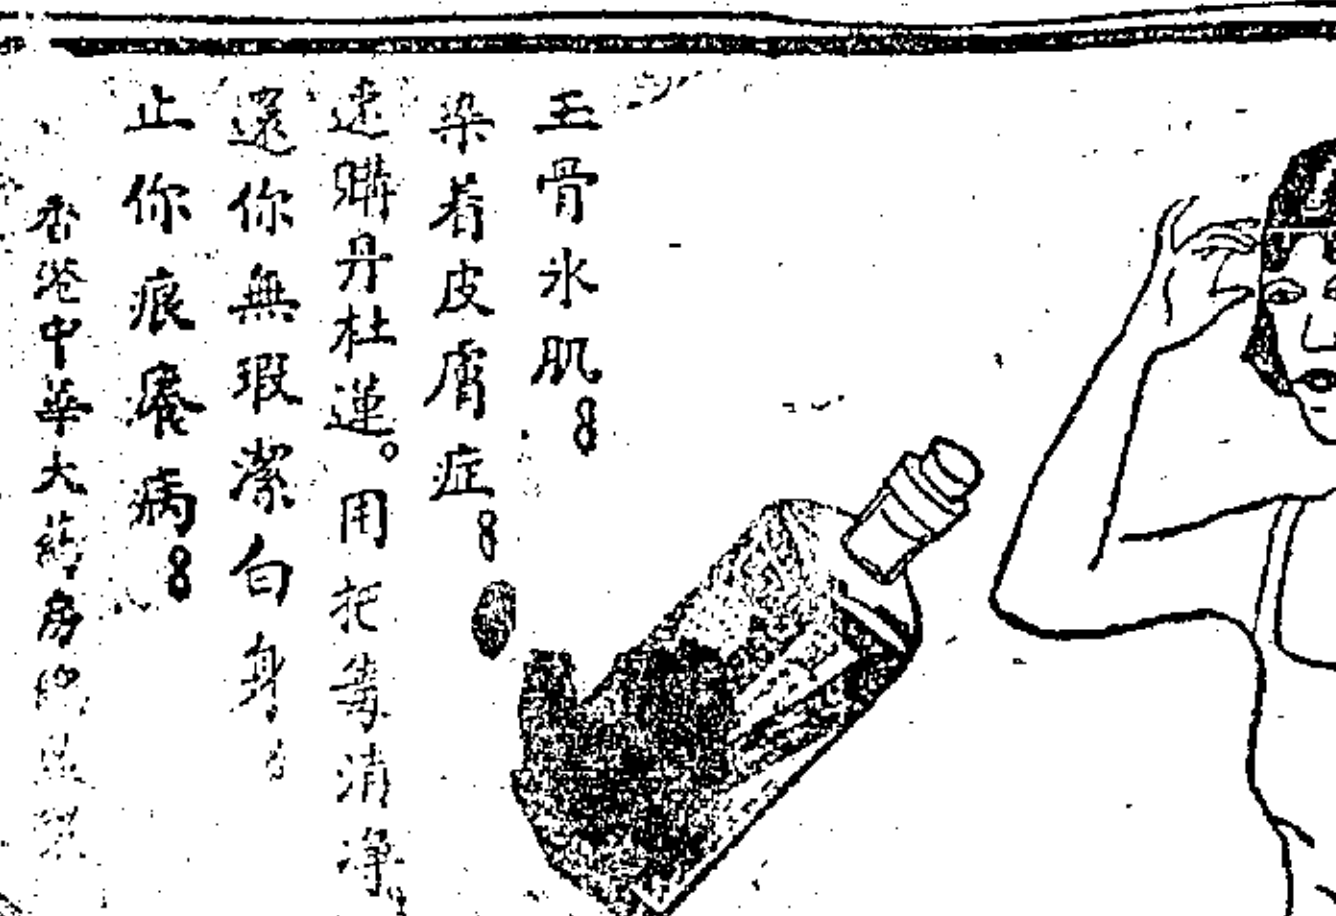 玉骨氷肌
染着皮膚症
速購丹杜蓮。用把毒清净
還你無瑕潔白身
止你痕癢病
香港中華大葯房